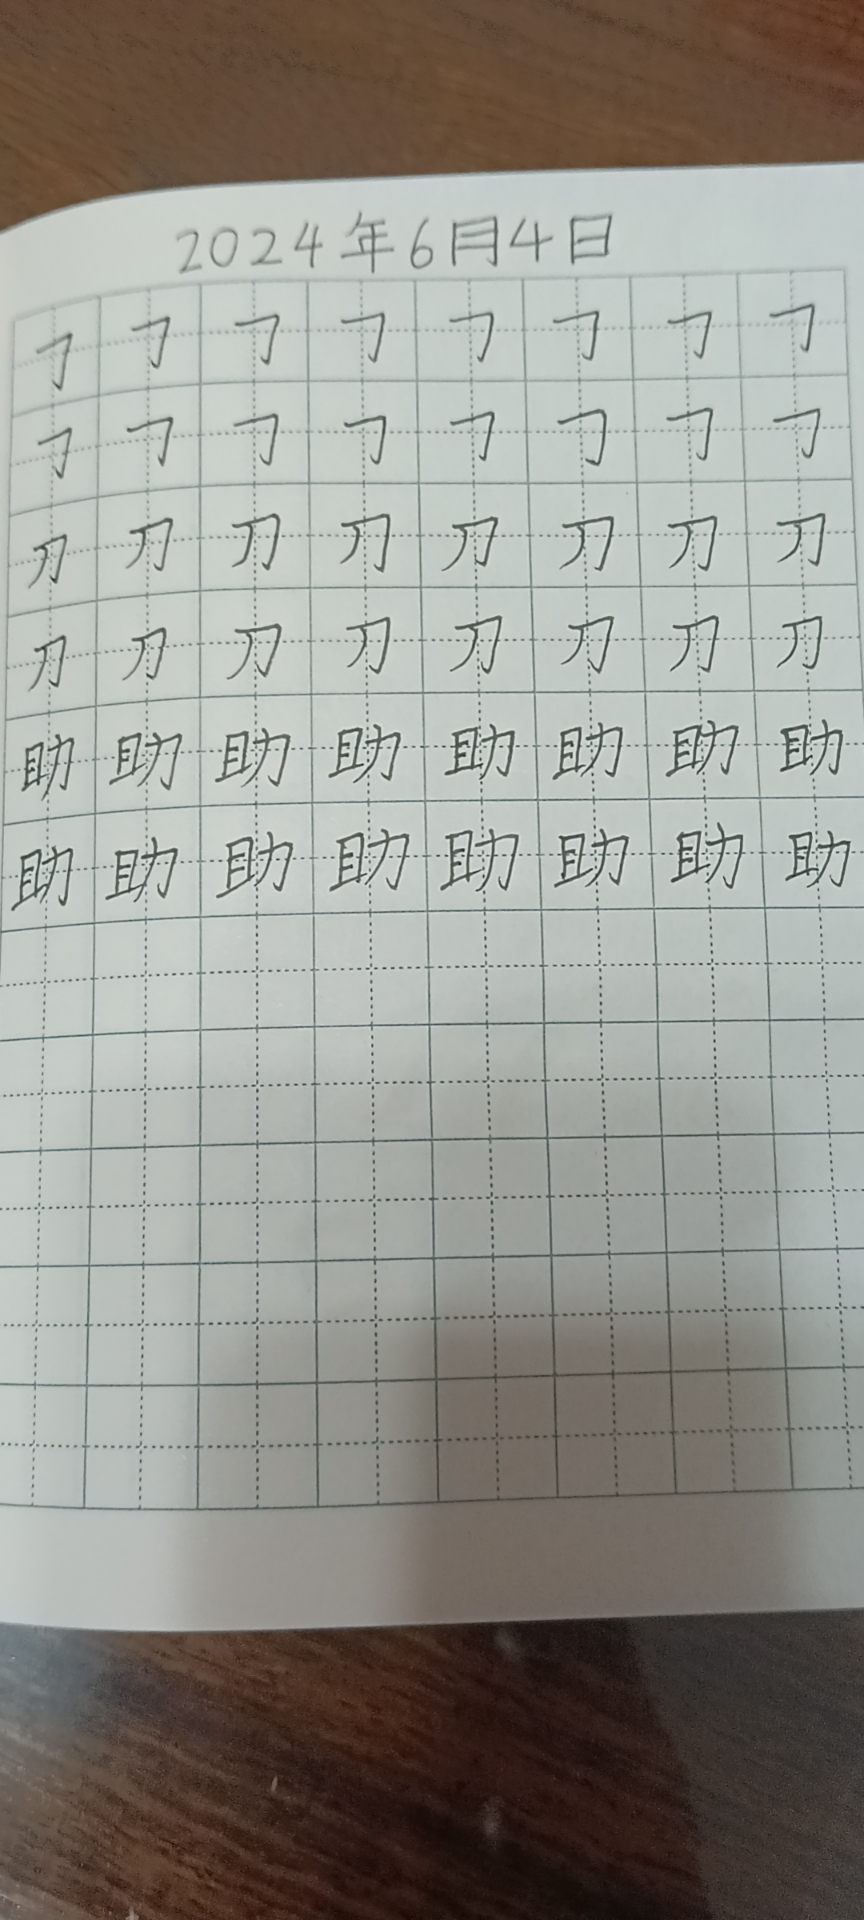 2024年6月4日
㇆㇆㇆㇆㇆㇆㇆㇆
㇆㇆㇆㇆㇆㇆㇆㇆
刀刀刀刀刀刀刀刀
刀刀刀刀刀刀刀刀
助助助助助助助助
助助助助助助助助